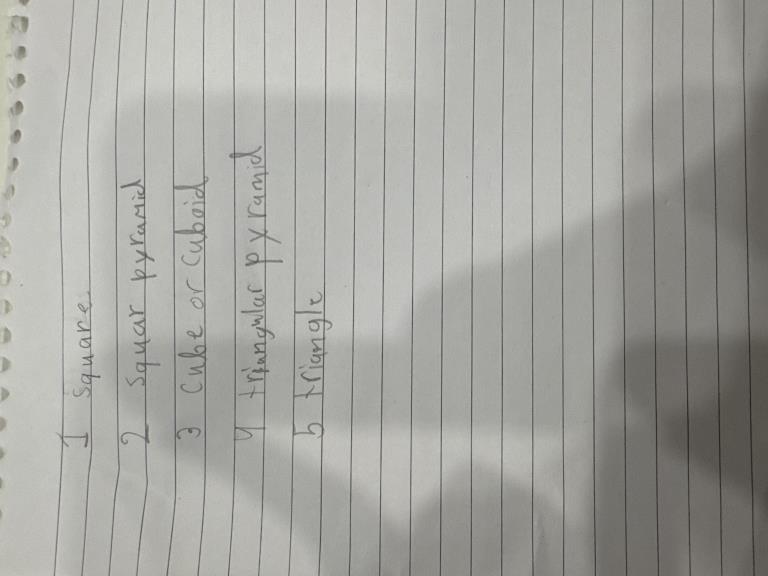 1 Square
2 Squar pyramid
3 Cube or cuboid
4 triangular pyramid
5 triangle